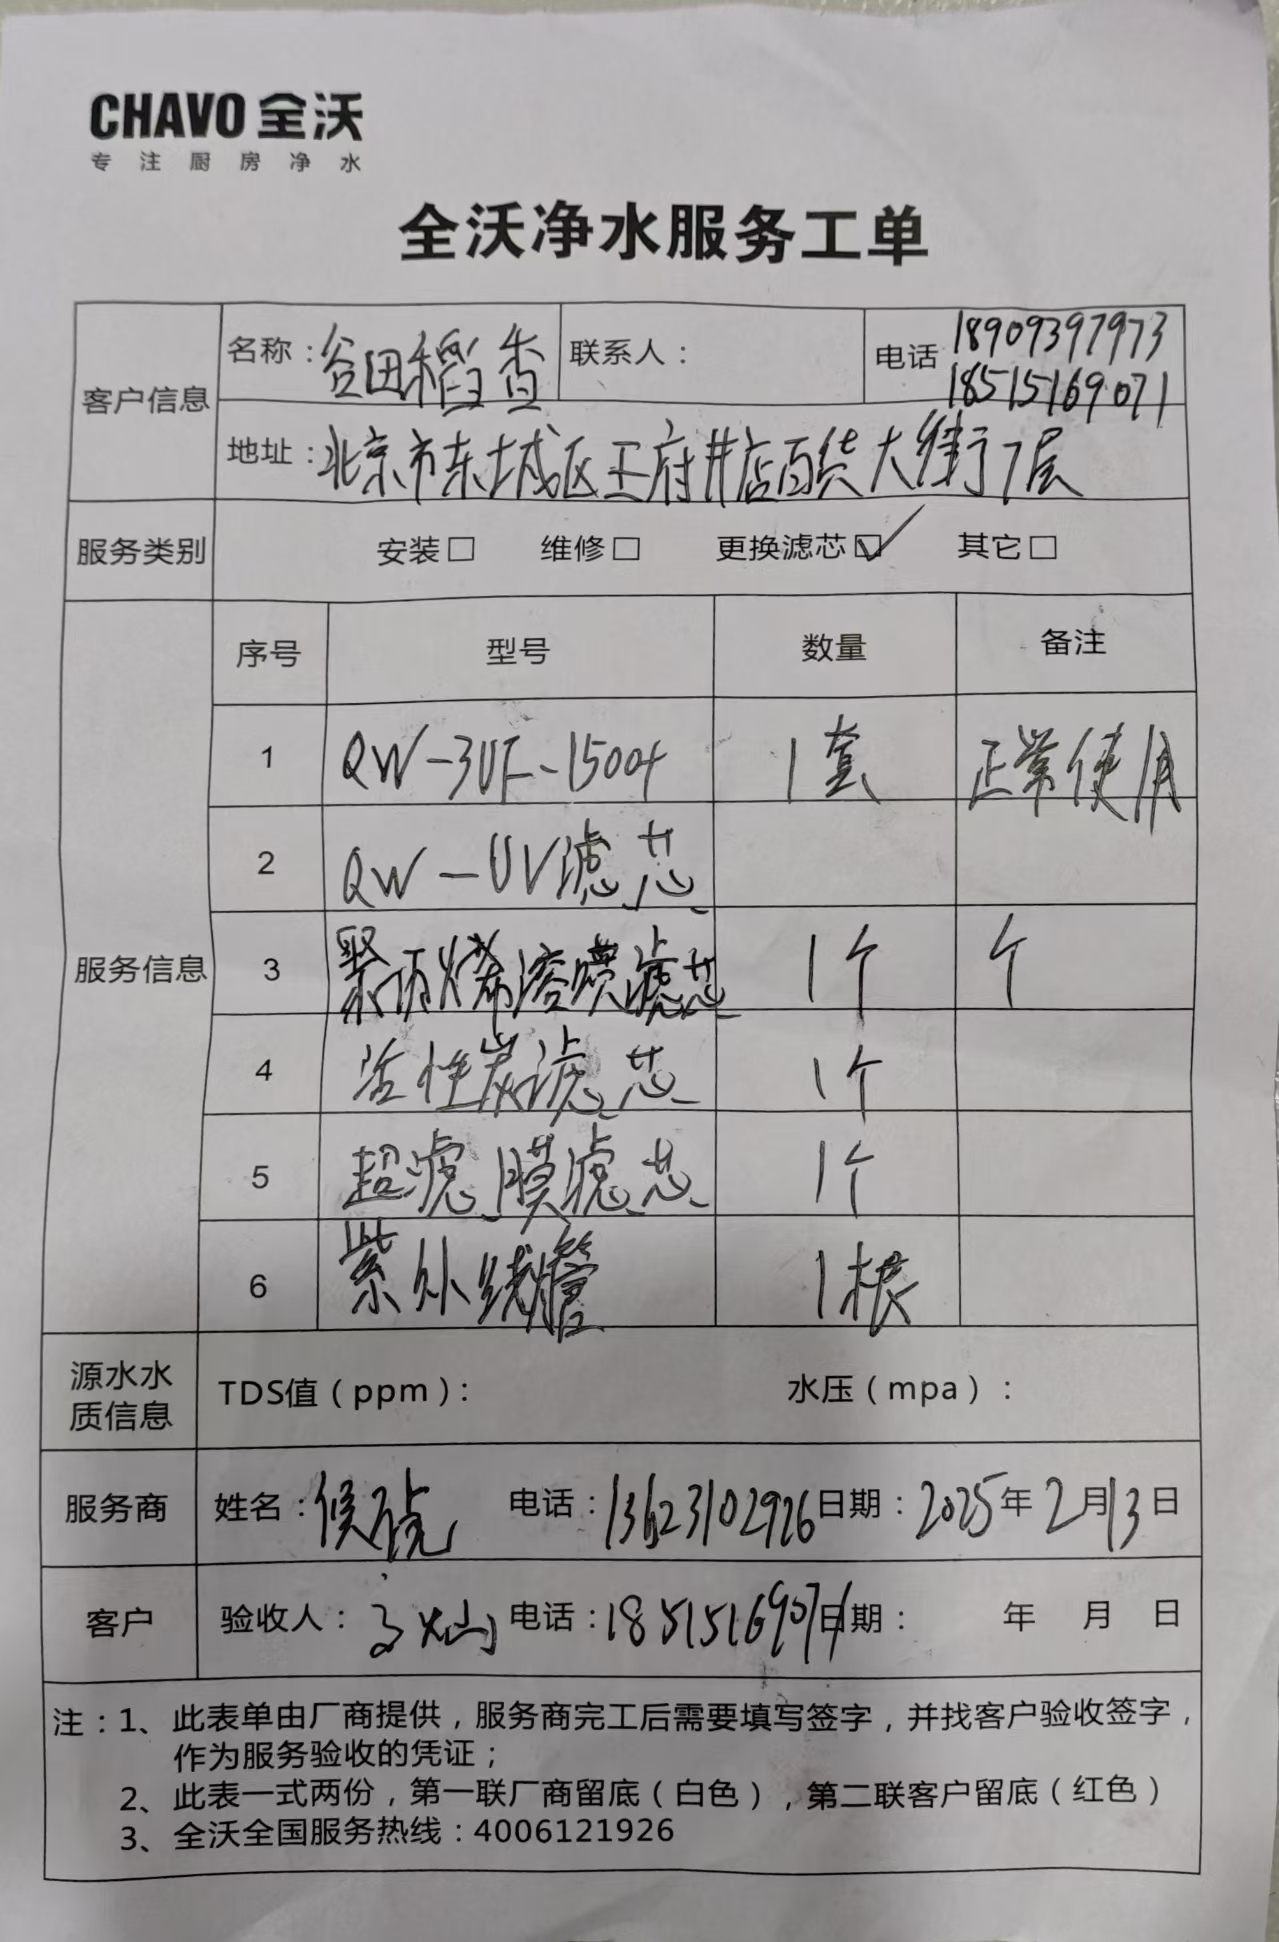 CHAVO 全沃
专注厨房净水
全沃净水服务工单
客户信息 名称：谷田稻香 联系人： 电话 18909397973
18515169071
地址：北京市东城区王府井店百货大街7层
服务类别 安装□ 维修□ 更换滤芯☑ 其它□
服务信息 序号 型号 数量 备注
1 QW-3UF-1500+ 1套 正常使用
2 QW-UV滤芯
3 聚丙烯溶喷滤芯 1个 个
4 活性炭滤芯 1个
5 超滤膜滤芯 1个
6 紫外线管 1根
源水水质信息 TDS值（ppm）： 水压（mpa）：
服务商 姓名： 电话：13623102926 日期：2025年2月13日
客户 验收人： 电话：18515169071 日期： 年 月 日
注：1、此表单由厂商提供，服务商完工后需要填写签字，并找客户验收签字，
作为服务验收的凭证；
2、此表一式两份，第一联厂商留底（白色），第二联客户留底（红色）
3、全沃全国服务热线：4006121926